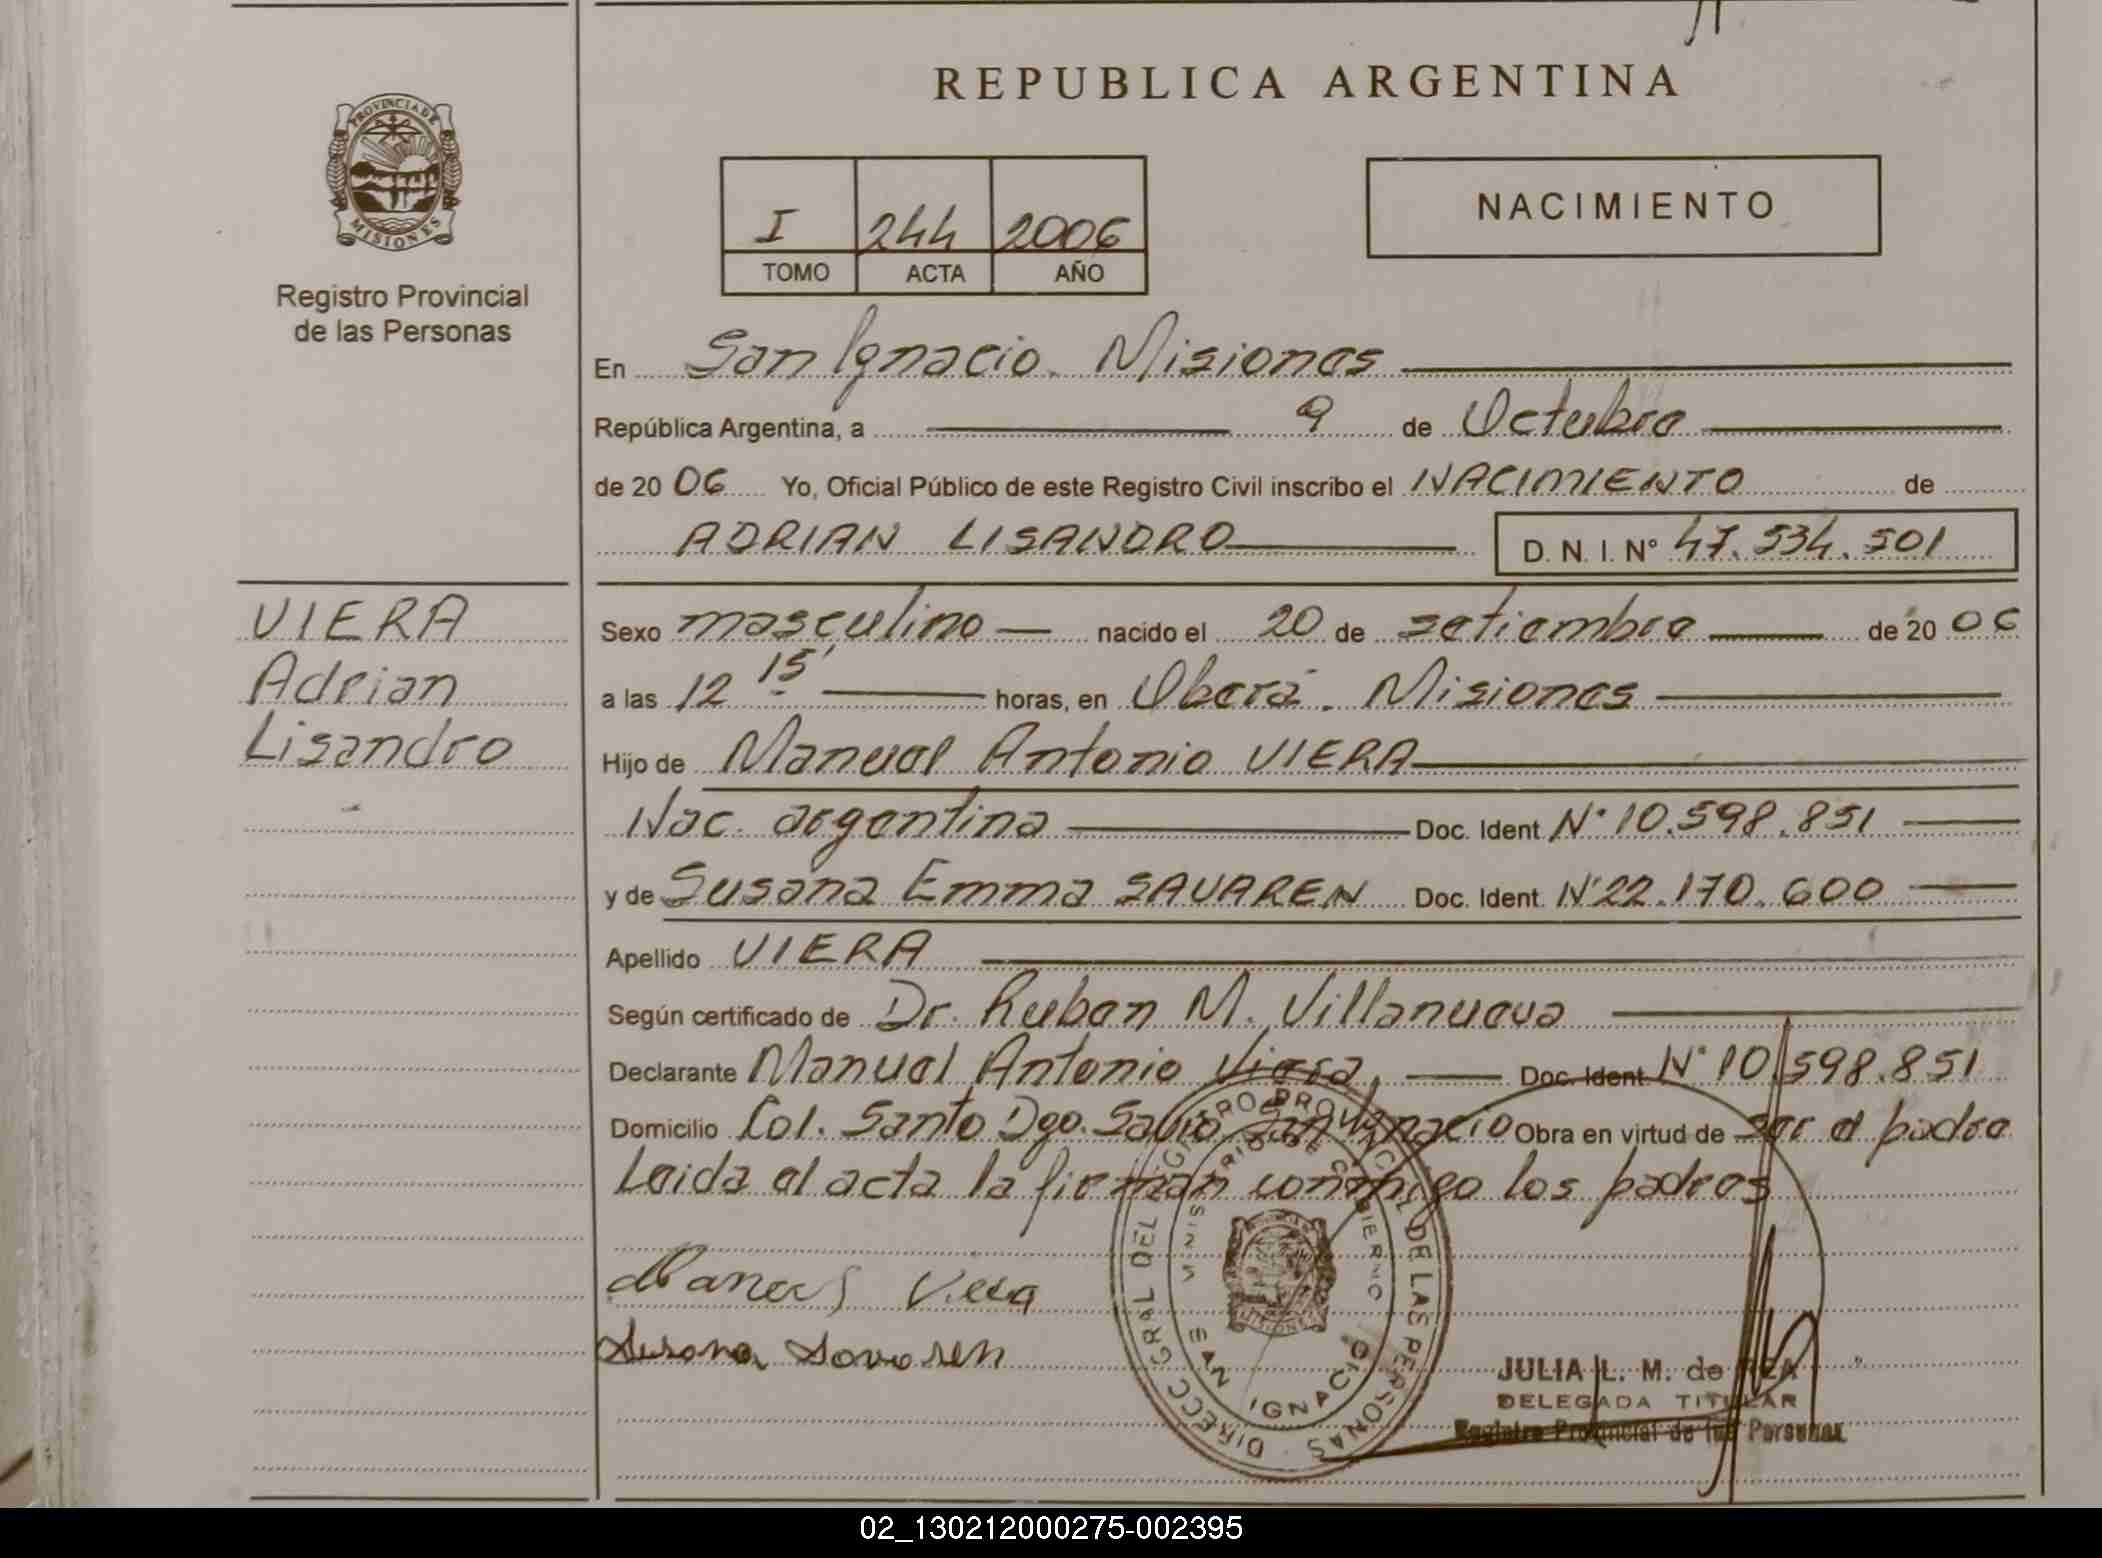 REPUBLICA ARGENTINA
PROVINCIA DE
MISIONES
Registro Provincial
de las Personas
I 244 2006
TOMO ACTA AÑO
NACIMIENTO
En San Ignacio. Misiones
República Argentina, a 9 de Octubre
de 20 06 Yo, Oficial Público de este Registro Civil inscribo el NACIMIENTO de
ADRIAN LISANDRO D. N. I. N° 47.534.501
VIERA
Adrian
Lisandro
Sexo masculino nacido el 20 de setiembre de 20 06
a las 12 15' horas, en Oberá. Misiones
Hijo de Manuel Antonio VIERA
Nac. argentina Doc. Ident N° 10.598.851
y de Susana Emma SAVAREN Doc. Ident. N° 22.170.600
Apellido VIERA
Según certificado de Dr. Ruben M. Villanueva
Declarante Manuel Antonio Viera, Doc. Ident N° 10.598.851
Domicilio Col. Santo Dgo. Savio San Ignacio Obra en virtud de ser el padre
Leida el acta la firman conmigo los padres
Manuel Viera
Susana Savaren
DIRECC. GRAL DEL REGISTRO PROVINCIAL DE LAS PERSONAS
MINISTERIO DE GOBIERNO
SAN IGNACIO
MISIONES
JULIA L. M. de REA
DELEGADA TITULAR
Registro Provincial de las Personas
02_130212000275-002395